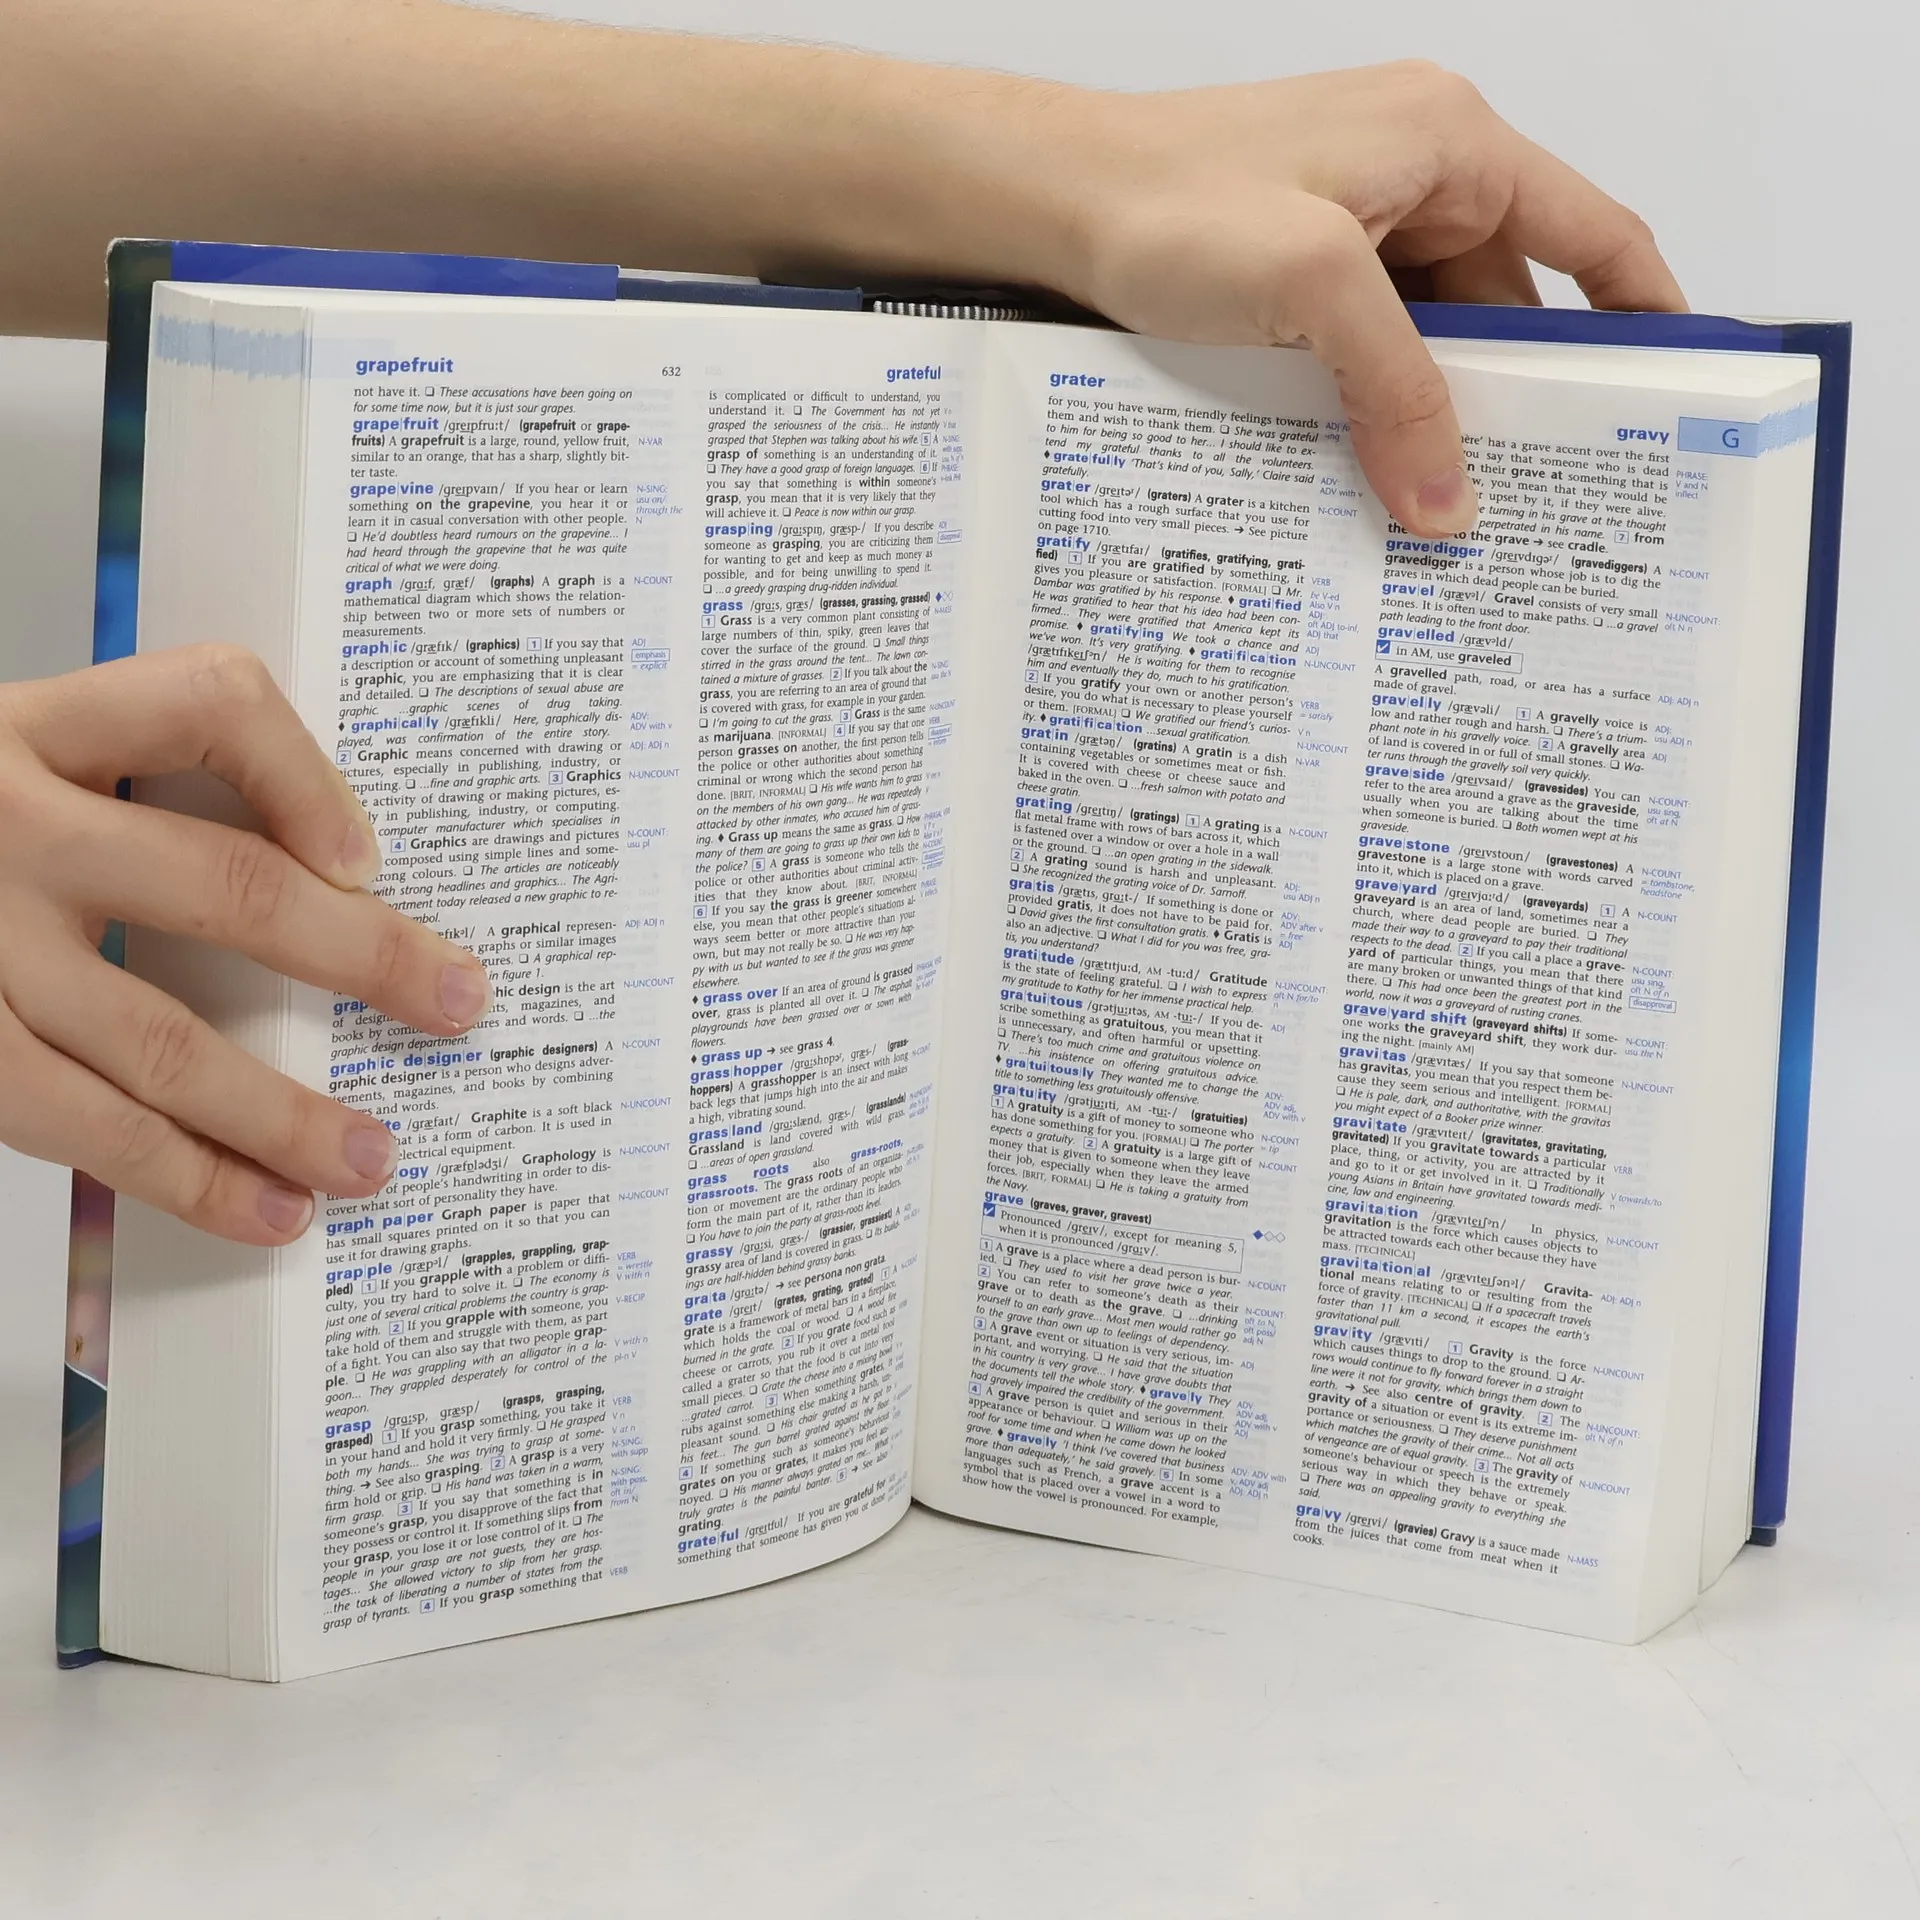 grapefruit
632
grateful
not have it. ❑ These accusations have been going on
for some time now, but it is just sour grapes.
grape|fruit /greɪpfruːt/ (grapefruit or grape-
fruits) A grapefruit is a large, round, yellow fruit, N-VAR
similar to an orange, that has a sharp, slightly bit-
ter taste.
grape|vine /greɪpvaɪn/ If you hear or learn N-SING:
something on the grapevine, you hear it or usu on/
learn it in casual conversation with other people. through the
❑ He'd doubtless heard rumours on the grapevine... I N
had heard through the grapevine that he was quite
critical of what we were doing.
graph /grɑːf, græf/ (graphs) A graph is a N-COUNT
mathematical diagram which shows the relation-
ship between two or more sets of numbers or
measurements.
graph|ic /græfɪk/ (graphics) 1 If you say that ADJ
a description or account of something unpleasant emphasis
is graphic, you are emphasizing that it is clear = explicit
and detailed. ❑ The descriptions of sexual abuse are
graphic. ...graphic scenes of drug taking.
♦ graphi|cal|ly /græfɪkli/ Here, graphically dis- ADV:
played, was confirmation of the entire story. ADV with v
2 Graphic means concerned with drawing or ADJ: ADJ n
pictures, especially in publishing, industry, or
mputing. ❑ ...fine and graphic arts. 3 Graphics N-UNCOUNT
e activity of drawing or making pictures, es-
ly in publishing, industry, or computing.
computer manufacturer which specialises in
4 Graphics are drawings and pictures N-COUNT:
composed using simple lines and some- usu pl
rong colours. ❑ The articles are noticeably
with strong headlines and graphics... The Agri-
artment today released a new graphic to re-
mbol.
efɪkəl/ A graphical represen- ADJ: ADJ n
es graphs or similar images
gures. ❑ A graphical rep-
in figure 1.
hic design is the art N-UNCOUNT
of design magazines, and
books by comb ures and words. ❑ ...the
graphic design department.
graph|ic de|sign|er (graphic designers) A N-COUNT
graphic designer is a person who designs adver-
isements, magazines, and books by combining
es and words.
te /græfaɪt/ Graphite is a soft black N-UNCOUNT
hat is a form of carbon. It is used in
electrical equipment.
ogy /græfɒlədʒi/ Graphology is N-UNCOUNT
y of people's handwriting in order to dis-
cover what sort of personality they have.
graph pa|per Graph paper is paper that N-UNCOUNT
has small squares printed on it so that you can
use it for drawing graphs.
grap|ple /græpəl/ (grapples, grappling, grap- VERB
pled) 1 If you grapple with a problem or diffi- = wrestle
culty, you try hard to solve it. ❑ The economy is V with n
just one of several critical problems the country is grap-
pling with. 2 If you grapple with someone, you V-RECIP
take hold of them and struggle with them, as part
of a fight. You can also say that two people grap-
ple. ❑ He was grappling with an alligator in a la- V with n
goon... They grappled desperately for control of the pl-n V
weapon.
grasp /grɑːsp, græsp/ (grasps, grasping,
grasped) 1 If you grasp something, you take it VERB
in your hand and hold it very firmly. ❑ He grasped V n
both my hands... She was trying to grasp at some- V at n
thing. → See also grasping. 2 A grasp is a very N-SING:
firm hold or grip. ❑ His hand was taken in a warm, with supp
firm grasp. 3 If you say that something is in N-SING:
someone's grasp, you disapprove of the fact that with poss,
they possess or control it. If something slips from oft in/
your grasp, you lose it or lose control of it. ❑ The from N
people in your grasp are not guests, they are hos-
tages... She allowed victory to slip from her grasp.
...the task of liberating a number of states from the
grasp of tyrants. 4 If you grasp something that VERB
is complicated or difficult to understand, you
understand it. ❑ The Government has not yet
grasped the seriousness of the crisis... He instantly
grasped that Stephen was talking about his wife. 5 A
grasp of something is an understanding of it.
❑ They have a good grasp of foreign languages. 6 If
you say that something is within someone's
grasp, you mean that it is very likely that they
will achieve it. ❑ Peace is now within our grasp.
grasp|ing /grɑːspɪŋ, græsp-/ If you describe ADJ
someone as grasping, you are criticizing them disapproval
for wanting to get and keep as much money as
possible, and for being unwilling to spend it.
❑ ...a greedy grasping drug-ridden individual.
grass /grɑːs, græs/ (grasses, grassing, grassed)
1 Grass is a very common plant consisting of
large numbers of thin, spiky, green leaves that
cover the surface of the ground. ❑ Small things
stirred in the grass around the tent... The lawn con-
tained a mixture of grasses. 2 If you talk about the
grass, you are referring to an area of ground that
is covered with grass, for example in your garden.
❑ I'm going to cut the grass. 3 Grass is the same
as marijuana. [INFORMAL] 4 If you say that one
person grasses on another, the first person tells
the police or other authorities about something
criminal or wrong which the second person has
done. [BRIT, INFORMAL] ❑ His wife wants him to grass
on the members of his own gang... He was repeatedly
attacked by other inmates, who accused him of grass-
ing. ♦ Grass up means the same as grass. ❑ How
many of them are going to grass up their own kids to
the police? 5 A grass is someone who tells the
police or other authorities about criminal activ-
ities that they know about. [BRIT, INFORMAL]
6 If you say the grass is greener somewhere
else, you mean that other people's situations al-
ways seem better or more attractive than your
own, but may not really be so. ❑ He was very hap-
py with us but wanted to see if the grass was greener
elsewhere.
♦ grass over If an area of ground is grassed
over, grass is planted all over it. ❑ The asphalt
playgrounds have been grassed over or sown with
flowers.
♦ grass up → see grass 4.
grass|hopper /grɑːshɒpəʳ, græs-/ (grass-
hoppers) A grasshopper is an insect with long
back legs that jumps high into the air and makes
a high, vibrating sound.
grass|land /grɑːslænd, græs-/ (grasslands)
Grassland is land covered with wild grass.
❑ ...areas of open grassland.
grass roots also grass-roots,
grassroots. The grass roots of an organiza-
tion or movement are the ordinary people who
form the main part of it, rather than its leaders.
❑ You have to join the party at grass-roots level.
grassy /grɑːsi, græs-/ (grassier, grassiest) A
grassy area of land is covered in grass. ❑ Its build-
ings are half-hidden behind grassy banks.
gra|ta /grɑːtə/ → see persona non grata.
grate /greɪt/ (grates, grating, grated) 1 A
grate is a framework of metal bars in a fireplace,
which holds the coal or wood. ❑ A wood fire
burned in the grate. 2 If you grate food such as
cheese or carrots, you rub it over a metal tool
called a grater so that the food is cut into very
small pieces. ❑ Grate the cheese into a mixing bowl
...grated carrot. 3 When something grates, it
rubs against something else making a harsh, un-
pleasant sound. ❑ His chair grated as he got to
his feet... The gun barrel grated against the floor.
4 If something such as someone's behaviour
grates on you or grates, it makes you feel an-
noyed. ❑ His manner always grated on me... What
truly grates is the painful banter. 5 → See also
grating.
grate|ful /greɪtfʊl/ If you are grateful for
something that someone has given you or done
grater
gravy
G
for you, you have warm, friendly feelings towards
them and wish to thank them. ❑ She was grateful
to him for being so good to her... I should like to ex-
tend my grateful thanks to all the volunteers.
♦ grate|ful|ly 'That's kind of you, Sally,' Claire said ADV:
gratefully. ADV with v
grat|er /greɪtəʳ/ (graters) A grater is a kitchen N-COUNT
tool which has a rough surface that you use for
cutting food into very small pieces. → See picture
on page 1710.
grati|fy /grætɪfaɪ/ (gratifies, gratifying, grati-
fied) 1 If you are gratified by something, it VERB
gives you pleasure or satisfaction. [FORMAL] ❑ Mr. be V-ed
Dambar was gratified by his response. ♦ grati|fied Also V n
He was gratified to hear that his idea had been con- ADJ:
firmed... They were gratified that America kept its oft ADJ to-inf,
promise. ♦ grati|fy|ing We took a chance and ADJ that
we've won. It's very gratifying. ♦ grati|fi|ca|tion ADJ
/grætɪfɪkeɪʃən/ He is waiting for them to recognise N-UNCOUNT
him and eventually they do, much to his gratification.
2 If you gratify your own or another person's VERB
desire, you do what is necessary to please yourself = satisfy
or them. [FORMAL] ❑ We gratified our friend's curios- V n
ity. ♦ grati|fi|ca|tion ...sexual gratification. N-UNCOUNT
grat|in /grætæn/ (gratins) A gratin is a dish N-VAR
containing vegetables or sometimes meat or fish.
It is covered with cheese or cheese sauce and
baked in the oven. ❑ ...fresh salmon with potato and
cheese gratin.
grat|ing /greɪtɪŋ/ (gratings) 1 A grating is a N-COUNT
flat metal frame with rows of bars across it, which
is fastened over a window or over a hole in a wall
or the ground. ❑ ...an open grating in the sidewalk.
2 A grating sound is harsh and unpleasant. ADJ:
❑ She recognized the grating voice of Dr. Sarnoff. usu ADJ n
gra|tis /grætɪs, grɑːt-/ If something is done or ADV:
provided gratis, it does not have to be paid for. ADV after v
❑ David gives the first consultation gratis. ♦ Gratis is = free
also an adjective. ❑ What I did for you was free, gra- ADJ
tis, you understand?
grati|tude /grætɪtjuːd, AM -tuːd/ Gratitude N-UNCOUNT:
is the state of feeling grateful. ❑ I wish to express oft N for/to
my gratitude to Kathy for her immense practical help. n
gra|tui|tous /grətjuːɪtəs, AM -tuː-/ If you de- ADJ
scribe something as gratuitous, you mean that it
is unnecessary, and often harmful or upsetting.
❑ There's too much crime and gratuitous violence on
TV. ...his insistence on offering gratuitous advice.
♦ gra|tui|tous|ly They wanted me to change the ADV:
title to something less gratuitously offensive. ADV adj,
ADV with v
gra|tu|ity /grətjuːɪti, AM -tuː-/ (gratuities)
1 A gratuity is a gift of money to someone who N-COUNT
has done something for you. [FORMAL] ❑ The porter = tip
expects a gratuity. 2 A gratuity is a large gift of N-COUNT
money that is given to someone when they leave
their job, especially when they leave the armed
forces. [BRIT, FORMAL] ❑ He is taking a gratuity from
the Navy.
grave (graves, graver, gravest)
Pronounced /greɪv/, except for meaning 5,
when it is pronounced /grɑːv/.
1 A grave is a place where a dead person is bur- N-COUNT
ied. ❑ They used to visit her grave twice a year.
2 You can refer to someone's death as their N-COUNT:
grave or to death as the grave. ❑ ...drinking oft to N,
yourself to an early grave... Most men would rather go oft poss/
to the grave than own up to feelings of dependency. adj N
3 A grave event or situation is very serious, im- ADJ
portant, and worrying. ❑ He said that the situation
in his country is very grave... I have grave doubts that
the documents tell the whole story. ♦ grave|ly They ADV:
had gravely impaired the credibility of the government. ADV adj,
4 A grave person is quiet and serious in their ADV with v
appearance or behaviour. ❑ William was up on the ADJ
roof for some time and when he came down he looked
grave. ♦ grave|ly 'I think I've covered that business
more than adequately,' he said gravely. 5 In some
languages such as French, a grave accent is a ADJ: ADJ n
symbol that is placed over a vowel in a word to
show how the vowel is pronounced. For example,
has a grave accent over the first
you say that someone who is dead PHRASE:
n their grave at something that is V and N
w, you mean that they would be inflect
r upset by it, if they were alive.
e turning in his grave at the thought
perpetrated in his name. 7 from
the to the grave → see cradle.
grave|digger /greɪvdɪgəʳ/ (gravediggers) A N-COUNT
gravedigger is a person whose job is to dig the
graves in which dead people can be buried.
grav|el /grævəl/ Gravel consists of very small N-UNCOUNT:
stones. It is often used to make paths. ❑ ...a gravel oft N n
path leading to the front door.
grav|elled /grævəld/
in AM, use graveled
A gravelled path, road, or area has a surface ADJ: ADJ n
made of gravel.
grav|el|ly /grævəli/ 1 A gravelly voice is ADJ:
low and rather rough and harsh. ❑ There's a trium- usu ADJ n
phant note in his gravelly voice. 2 A gravelly area ADJ
of land is covered in or full of small stones. ❑ Wa-
ter runs through the gravelly soil very quickly.
grave|side /greɪvsaɪd/ (gravesides) You can N-COUNT:
refer to the area around a grave as the graveside, usu sing,
usually when you are talking about the time oft at N
when someone is buried. ❑ Both women wept at his
graveside.
grave|stone /greɪvstoʊn/ (gravestones) A N-COUNT
gravestone is a large stone with words carved = tombstone,
into it, which is placed on a grave. headstone
grave|yard /greɪvjɑːʳd/ (graveyards) 1 A N-COUNT
graveyard is an area of land, sometimes near a
church, where dead people are buried. ❑ They
made their way to a graveyard to pay their traditional
respects to the dead. 2 If you call a place a grave- N-COUNT:
yard of particular things, you mean that there usu sing,
are many broken or unwanted things of that kind oft N of n
there. ❑ This had once been the greatest port in the disapproval
world, now it was a graveyard of rusting cranes.
grave|yard shift (graveyard shifts) If some- N-COUNT:
one works the graveyard shift, they work dur- usu the N
ing the night. [mainly AM]
gravi|tas /grævɪtæs/ If you say that someone N-UNCOUNT
has gravitas, you mean that you respect them be-
cause they seem serious and intelligent. [FORMAL]
❑ He is pale, dark, and authoritative, with the gravitas
you might expect of a Booker prize winner.
gravi|tate /grævɪteɪt/ (gravitates, gravitating,
gravitated) If you gravitate towards a particular VERB
place, thing, or activity, you are attracted by it
and go to it or get involved in it. ❑ Traditionally V towards/to
young Asians in Britain have gravitated towards medi- n
cine, law and engineering.
gravi|ta|tion /grævɪteɪʃən/ In physics, N-UNCOUNT
gravitation is the force which causes objects to
be attracted towards each other because they have
mass. [TECHNICAL]
gravi|ta|tion|al /grævɪteɪʃənəl/ Gravita- ADJ: ADJ n
tional means relating to or resulting from the
force of gravity. [TECHNICAL] ❑ If a spacecraft travels
faster than 11 km a second, it escapes the earth's
gravitational pull.
grav|ity /grævɪti/ 1 Gravity is the force N-UNCOUNT
which causes things to drop to the ground. ❑ Ar-
rows would continue to fly forward forever in a straight
line were it not for gravity, which brings them down to
earth. → See also centre of gravity. 2 The N-UNCOUNT:
gravity of a situation or event is its extreme im- oft N of n
portance or seriousness. ❑ They deserve punishment
which matches the gravity of their crime... Not all acts
of vengeance are of equal gravity. 3 The gravity of N-UNCOUNT
someone's behaviour or speech is the extremely
serious way in which they behave or speak.
❑ There was an appealing gravity to everything she
said.
gra|vy /greɪvi/ (gravies) Gravy is a sauce made N-MASS
from the juices that come from meat when it
cooks.